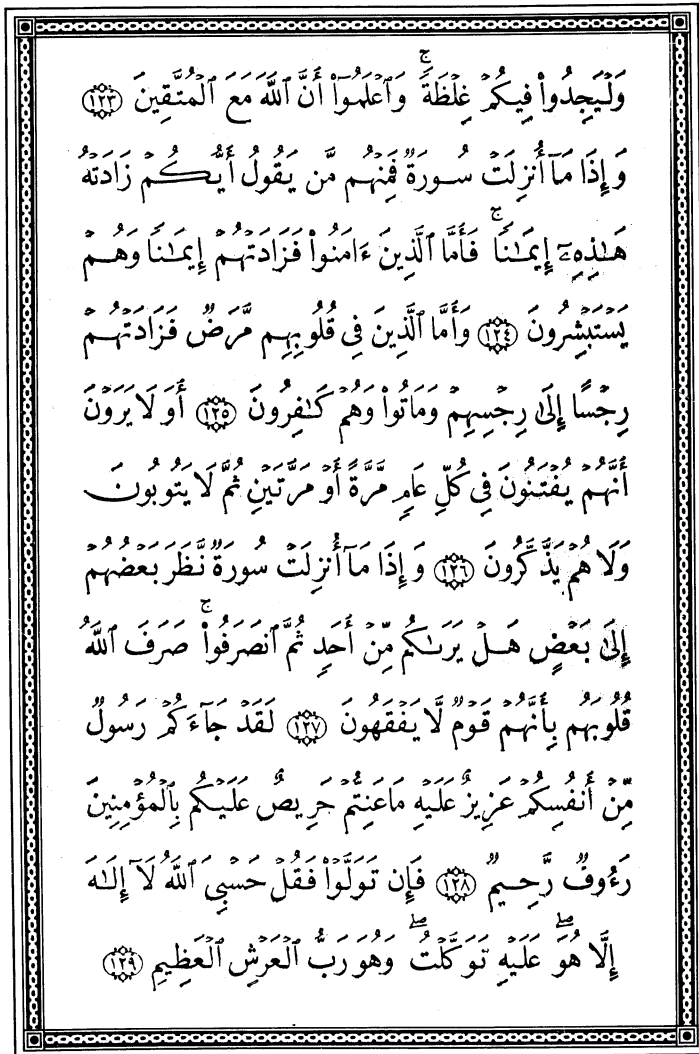 وَلْيَجِدُواْ فِيكُمْ غِلْظَةً ۚ وَٱعْلَمُوٓاْ أَنَّ ٱللَّهَ مَعَ ٱلْمُتَّقِينَ ١٢٣
وَإِذَا مَآ أُنزِلَتْ سُورَةٌ فَمِنْهُم مَّن يَقُولُ أَيُّكُمْ زَادَتْهُ
هَـٰذِهِۦٓ إِيمَـٰنًا ۚ فَأَمَّا ٱلَّذِينَ ءَامَنُواْ فَزَادَتْهُمْ إِيمَـٰنًا وَهُمْ
يَسْتَبْشِرُونَ ١٢٤ وَأَمَّا ٱلَّذِينَ فِى قُلُوبِهِم مَّرَضٌ فَزَادَتْهُمْ
رِجْسًا إِلَىٰ رِجْسِهِمْ وَمَاتُواْ وَهُمْ كَـٰفِرُونَ ١٢٥ أَوَلَا يَرَوْنَ
أَنَّهُمْ يُفْتَنُونَ فِى كُلِّ عَامٍ مَّرَّةً أَوْ مَرَّتَيْنِ ثُمَّ لَا يَتُوبُونَ
وَلَا هُمْ يَذَّكَّرُونَ ١٢٦ وَإِذَا مَآ أُنزِلَتْ سُورَةٌ نَّظَرَ بَعْضُهُمْ
إِلَىٰ بَعْضٍ هَلْ يَرَىٰكُم مِّنْ أَحَدٍ ثُمَّ ٱنصَرَفُواْ ۚ صَرَفَ ٱللَّهُ
قُلُوبَهُم بِأَنَّهُمْ قَوْمٌ لَّا يَفْقَهُونَ ١٢٧ لَقَدْ جَآءَكُمْ رَسُولٌ
مِّنْ أَنفُسِكُمْ عَزِيزٌ عَلَيْهِ مَا عَنِتُّمْ حَرِيصٌ عَلَيْكُم بِٱلْمُؤْمِنِينَ
رَءُوفٌ رَّحِيمٌ ١٢٨ فَإِن تَوَلَّوْاْ فَقُلْ حَسْبِىَ ٱللَّهُ لَآ إِلَـٰهَ
إِلَّا هُوَ ۖ عَلَيْهِ تَوَكَّلْتُ ۖ وَهُوَ رَبُّ ٱلْعَرْشِ ٱلْعَظِيمِ ١٢٩